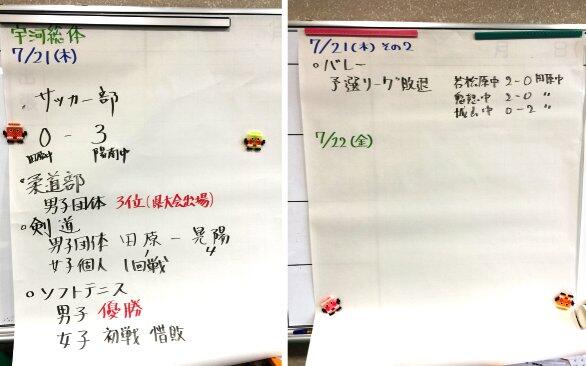 宇河総体
7/21(木)
サッカー部
0 - 3
田原中 陽南中
柔道部
男子団体 3位(県大会出場)
剣道
男子団体 田原 - 晃陽
1 4
女子個人 1回戦
ソフトテニス
男子 優勝
女子 初戦 惜敗
7/21(木) その2
バレー
予選リーグ敗退 若松原中 2-0 田原中
2-0 〃
城山中 0-2 〃
7/22(金)